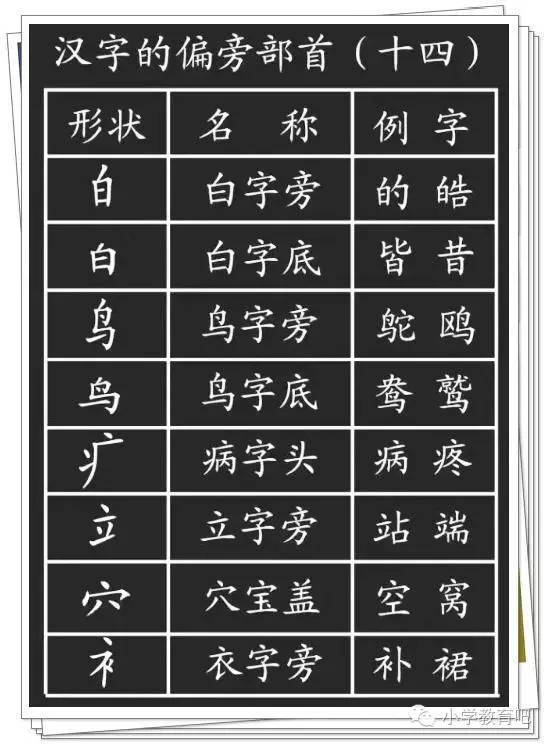 汉字的偏旁部首（十四）
形状 名 称 例 字
白 白字旁 的 皓
白 白字底 皆 昔
鸟 鸟字旁 鸵 鸥
鸟 鸟字底 鸯 鹫
疒 病字头 病 疼
立 立字旁 站 端
穴 穴宝盖 空 窝
衤 衣字旁 补 裙
小学教育吧